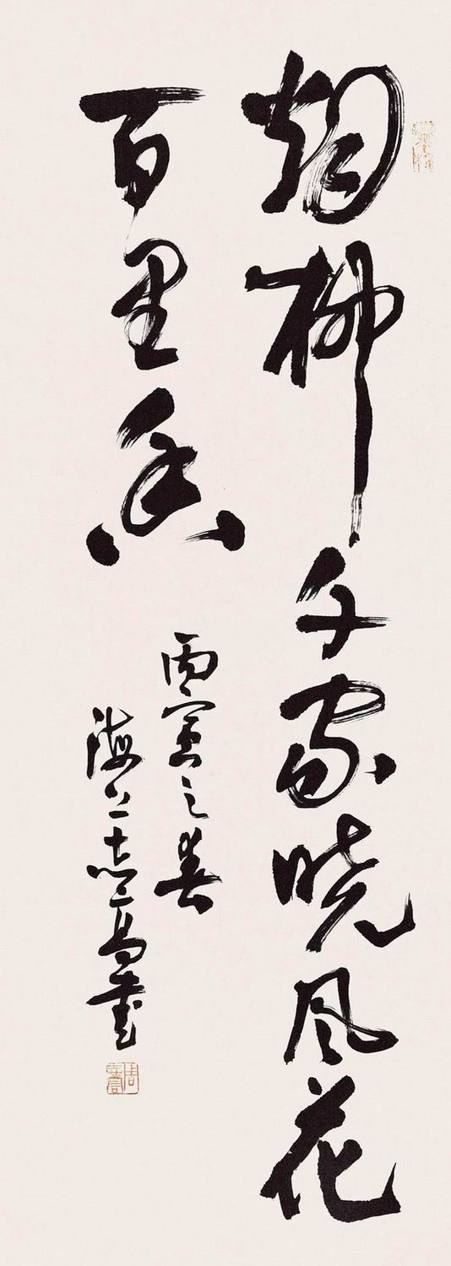 烟柳千家晓风花
百里香
丙寅之春
海上志高书